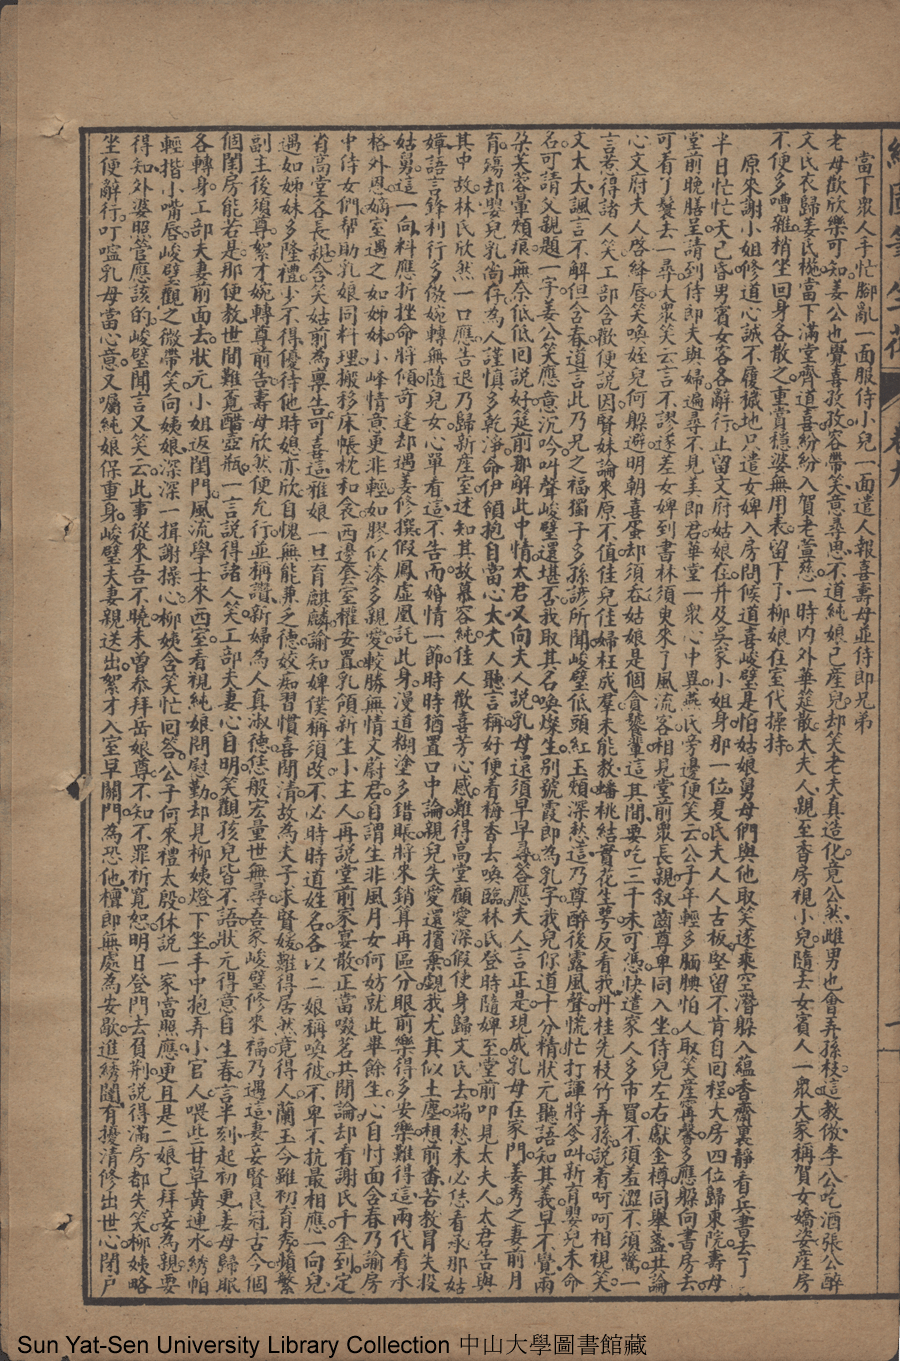 繪圖筆生花 卷九
當下衆人手忙腳亂一面服侍小兒一面遣人報喜壽母並侍郎兄弟
老母歡欣樂可知姜公也覺喜孜孜容帶笑意尋思不道純娘已產兒却笑老天真造化竟公然雌男也會弄孫枝這教做李公吃酒張公醉
文氏衣歸姜氏桃當下滿堂齊道喜紛紛入賀老萱慈一時內外華筵散太夫人親至香房視小兒隨去女賓人一衆大家稱賀女嬌姿產房
不便多嘈雜稍坐回身各散之重賞穩婆無用表留下了柳娘在室代操持
原來謝小姐修道心誠不履穢地只遣女婢入房問候道喜峻璧是怕姑娘舅母們與他取笑遂乘空潛躲入蘊香齋裏靜看兵書去了
半日忙忙天已昏男賓女客各辭行止留文府姑娘在并及吳家小姐身那一位夏氏夫人人古板堅留不肯自回程大房四位歸東院壽母
堂前晚膳呈請到侍郎夫與婦遍尋不見美郎君華堂一衆心中異燕氏旁邊便笑云公子年輕多腼腆怕人取笑產寧馨多應躲向書房去
可看了鬟去一尋大衆笑云言不謬遂差女婢到書林須臾來了風流客相見堂前衆長親叙齒尊卑同入坐侍兒左右獻金樽同舉盞共論
心文府夫人啓絳唇笑喚姪兒何躲避明朝喜蛋却須吞姑娘是個貪饕輩這其間要吃三千未可憑快遣家人多市買不須羞澀不須驚一
言惹得諸人笑工部含歡便說因賢妹論來原不值佳兒佳婦枉成羣未能教蟠桃結實花生萼反看我丹桂先枝竹弄孫說着呵呵相視笑
文太太諷言不解但含春道言此乃兄之福獨子多孫諺所聞峻璧低頭紅玉頰深愁這乃尊醉後露風聲慌忙打諢將爹叫新育嬰兒未命
名可請父親題一字姜公笑應意沉吟叫聲峻璧還堪否我取其名喚燦生別號霞郎為乳字我兒你道十分精狀元聽語知其義早才覺兩
朶芙蓉暈頰痕無奈低低回說好筵前那解此中情太君又向夫人說乳母還須早早尋各應夫人言正是現成乳母在家門姜秀之妻前月
育殤却嬰兒乳尚存為人謹慎多乾淨命伊領抱自當心太夫人聽言稱好便看梅香去喚臨林氏登時隨婢至堂前叩見太夫人太君告與
其中故林氏欣然一口應告退乃歸新產室述知其故慕容純佳人歡喜芳心感難得高堂顧愛深假使身歸文氏去端愁未必恁看承那姑
嫜語言鋒利行多傲婉轉無隨兒女心單看這不告而婚情一節時時猶置口中論親兒失愛還擯棄覷我尤其似土塵相前番苦教冒失投
姑舅這一向料應折挫命將傾奇逢却遇姜修撰假鳳虛凰託此身漫道糊塗多錯賬將來銷算再區分眼前樂得多安樂難得這兩代看承
格外恩嫡室遇之如姊妹小峰情意更非輕如膠似漆多親愛較勝無情文蔚君自謂生非風月女何妨就此畢餘生心自忖面含春乃諭房
中侍女們帮助乳娘同料理搬移床帳枕和衾西邊套室權安置乳領新生小主人再說堂前家宴散正當啜茗共閒論却看謝氏千金到定
省高堂各長親含笑姑前為稟告可喜這雅娘一旦育麒麟諭知婢僕稱須改不必時時道姓名各以二娘稱喚彼不卑不抗最相應一向兒
遇如姊妹多隆禮少不得優待他時媳亦欣自愧無能兼乏德姣痴習慣喜閒清故為夫子求賢媛難得居然竟得人蘭玉今雖初育秀蘋蘩
副主後須尊絮才婉轉尊前告壽母欣然便允行並稱讚新婦為人真淑德恁般宏量世無尋吾家峻璧修來福乃遇這妻妾賢良冠古今個
個閨房能若是那便教世間難覓醋壺瓶一言說得諸人笑工部夫妻心自明笑觀孩兒皆不語狀元得意自生春言半刻起初更壽母歸眠
各轉身工部夫妻前面去狀元小姐返閨門風流學士來西室看視純娘問慰勤却見柳姨燈下坐手中抱弄小官人喂些甘草黃連水綉帕
輕揩小嘴唇峻璧觀之微帶笑向姨娘深深一揖謝操心柳姨含笑忙回答公子何來禮太殷休說一家當照應更且是二娘已拜妾為親要
得知外婆照管應該的峻璧聞言又笑云此事從來吾不曉未曾叅拜岳娘尊不知不罪祈寬恕明日登門去負荆說得滿房都失笑柳姨略
坐便辭行叮嚀乳母當心意又囑純娘保重身峻璧夫妻親送出絮才入室早關門為恐他檀郎無處為安歇進綉闥有擾清修出世心閉戶
Sun Yat-Sen University Library Collection 中山大學圖書館藏